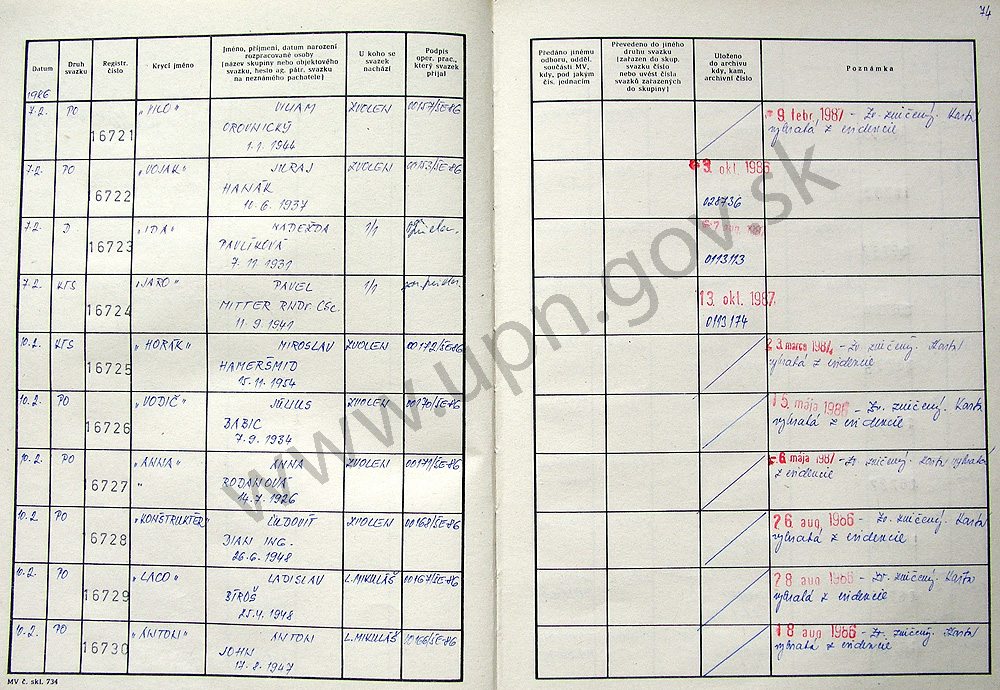 74
Datum
Druh
svazku
Registr.
číslo
Krycí jméno
Jméno, příjmení, datum narození
rozpracované osoby
(název skupiny nebo objektového
svazku, heslo ag. pátr. svazku
na neznámého pachatele)
U koho se
svazek
nachází
Podpis
oper. prac.,
který svazek
přijal
Předáno jinému
odboru, odděl.
součásti MV,
kdy, pod jakým
čís. jednacím
Převedeno do jiného
druhu svazku
(zařazen do skup.
svazku číslo
nebo uvést čísla
svazků zařazených
do skupiny)
Uloženo
do archivu
kdy, kam,
archivní číslo
Poznámka
1986
7.2. PO 16721 "PILO" VILIAM ZVOLEN 00157/ŠE-86
OROVNICKÝ
1.1.1944
9. febr. 1987 - Zv. zničený. Karta
vybratá z evidencie
7.2. PO 16722 "VOJAK" JURAJ ZVOLEN 00153/ŠE-86
HANÁK
10.6.1937
3. okt. 1986
028736
7.2. D 16723 "IDA" NADEŽDA 1/1
PAVLÍKOVÁ
7.11.1931
0113113
7.2. KTS 16724 "JARO" PAVEL 1/1
MITTER RNDr. CSc.
11.9.1941
13. okt. 1987
0113174
10.2. KTS 16725 "HORÁK" MIROSLAV ZVOLEN 00172/ŠE-86
HAMERŠMID
15.11.1954
23. marca 1987 - Zv. zničený. Karta
vybratá z evidencie
10.2. PO 16726 "VODIČ" JÚLIUS ZVOLEN 00170/ŠE-86
BABIC
7.9.1934
15. mája 1986 - Zv. zničený. Karta
vybratá z evidencie
10.2. PO 16727 "ANNA" ANNA ZVOLEN 00171/ŠE-86
BODANOVÁ
14.7.1926
6. mája 1987 - Zv. zničený. Karta vybratá
z evidencie
10.2. PO 16728 "KONŠTRUKTÉR" ĽUDOVÍT ZVOLEN 00168/ŠE-86
DIAN ING.
26.6.1948
26. aug. 1986 - Zv. zničený. Karta
vybratá z evidencie
10.2. PO 16729 "LACO" LADISLAV L. MIKULÁŠ 00167/ŠE-86
BÍROŠ
25.4.1948
28. aug. 1986 - Zv. zničený. Karta
vybratá z evidencie
10.2. PO 16730 "ANTON" ANTON L. MIKULÁŠ 00166/ŠE-86
JOHN
17.8.1947
18. aug. 1986 - Zv. zničený. Karta
vybratá z evidencie
MV č. skl. 734
www.upn.gov.sk